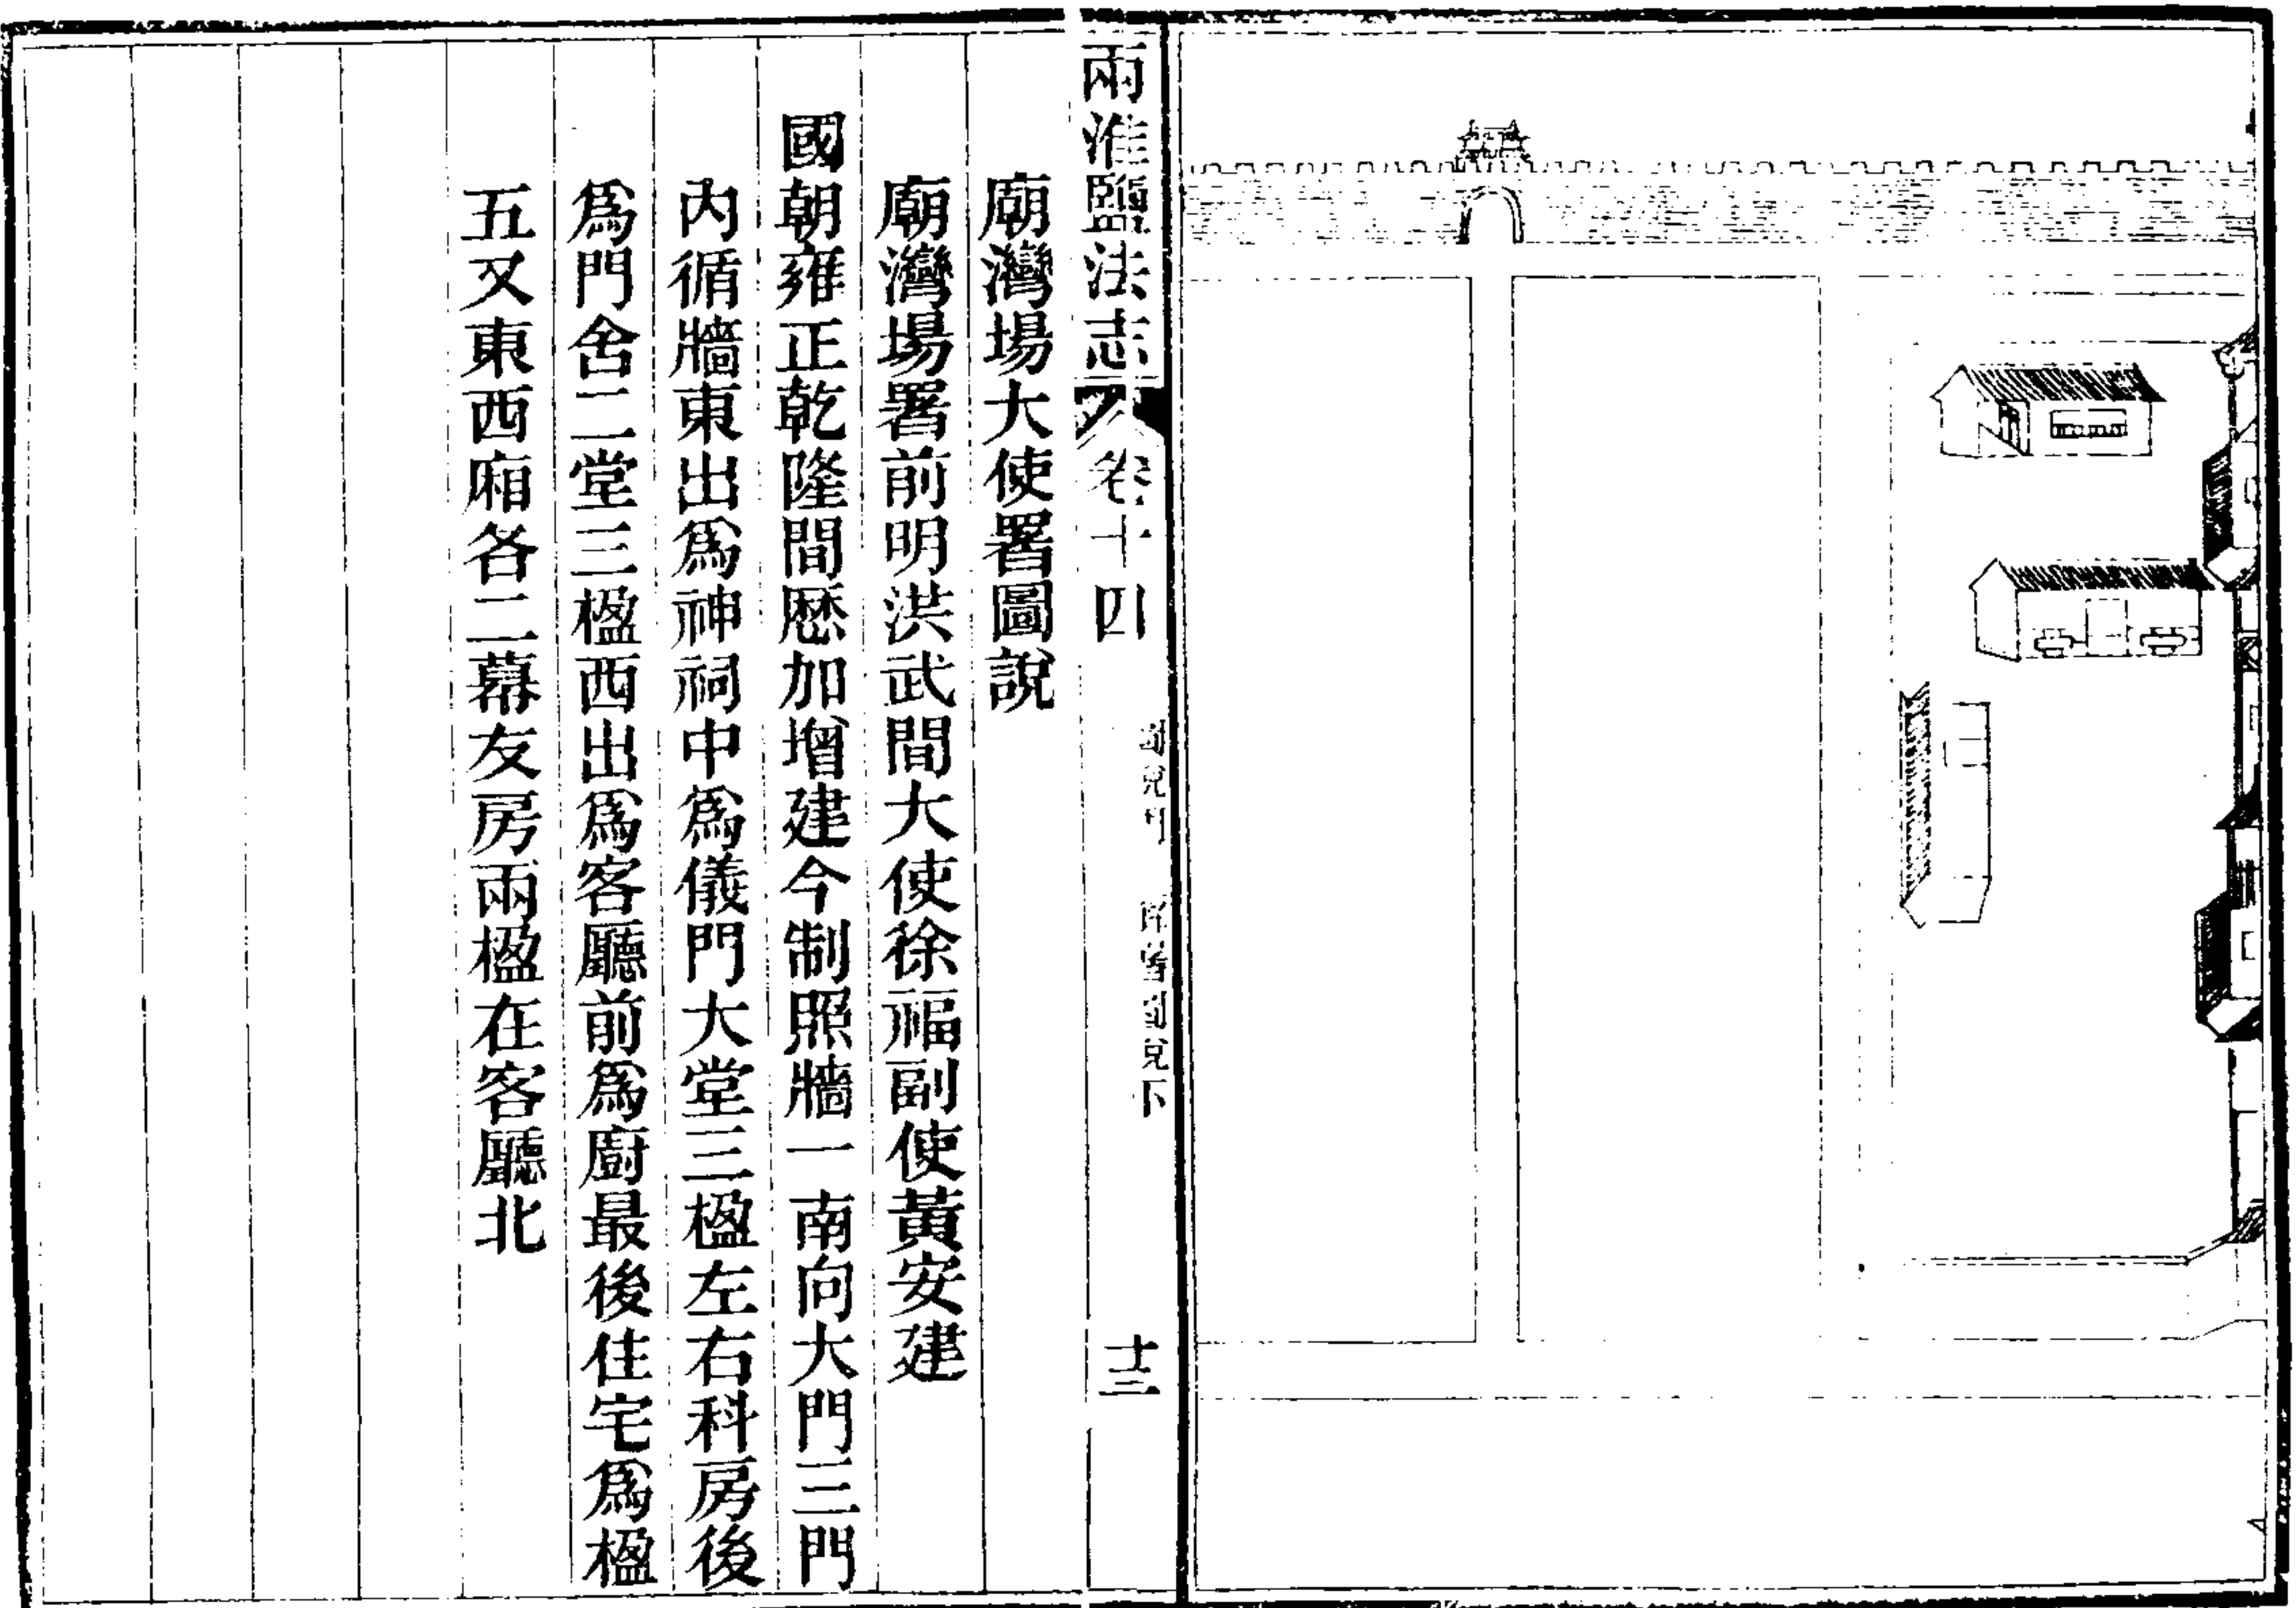 兩淮鹽法志
卷十四
圖說門
廨署圖說下
十三
廟灣場大使署圖說
廟灣場署前明洪武間大使徐福副使黃安建
國朝雍正乾隆間歷加增建今制照牆一南向大門三門
內循牆東出爲神祠中爲儀門大堂三楹左右科房後
爲門舍二堂三楹西出爲客廳前爲廚最後住宅爲楹
五又東西廂各二幕友房兩楹在客廳北